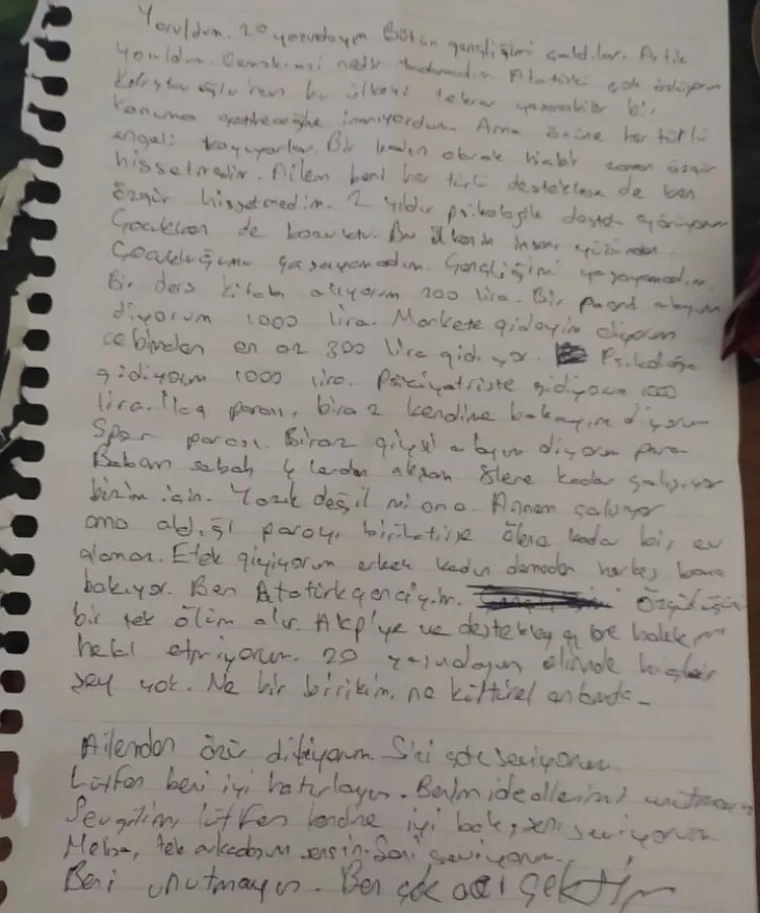 Yoruldum. 20 yaşındayım Bütün gençliğimi çaldılar. Artık
yoruldum. Demokrasi nedir bilmedim Atatürk'ü çok özlüyorum
bu ülkeyi tekrar yaşanabilir bir
konuma getireceğine inanıyordum. Ama önüne her türlü
engeli koyuyorlar. Bir kadın olarak hiçbir zaman özgür
hissetmedim. Ailem beni her türlü desteklese de ben
özgür hissetmedim. 2 yıldır psikolojik destek görüyorum
de bozuktu. Bu ülkenin insanı yüzünden
Çocukluğumu yaşayamadım. Gençliğimi yaşayamadım.
Bir ders kitabı alıyorum 200 lira. Bir alayım
diyorum 1000 lira. Markete gideyim diyorum
cebimden en az 300 lira gidiyor. Psikoloğa
gidiyorum 1000 lira. Psikiyatriste gidiyorum 1000
lira. İlaç parası, biraz kendime bakayım diyorum
Spor parası. Biraz giysi alayım diyorum para
Babam sabah lardan akşam kadar çalışıyor
bizim için. Yazık değil mi ona. Annem çalışıyor
ama aldığı parayı biriktirse ölene kadar bir ev
alamaz. Etek giyiyorum erkek kadın demeden herkes bana
bakıyor. Ben Atatürk genciyim. Özgürlüğümü
bir tek ölüm alır. Akp'ye ve destekleyen
hakkımı helal etmiyorum. 20 yaşındayım elimde hiçbir
şey yok. Ne bir birikim, ne kültürel
Ailemden özür diliyorum. Sizi çok seviyorum.
Lütfen beni iyi hatırlayın. Benim ideallerimi unutmayın
Sevgilim, lütfen kendine iyi bak, seni seviyorum.
Melisa, tek arkadaşım sensin. Seni seviyorum.
Beni unutmayın. Ben çok acı çektim